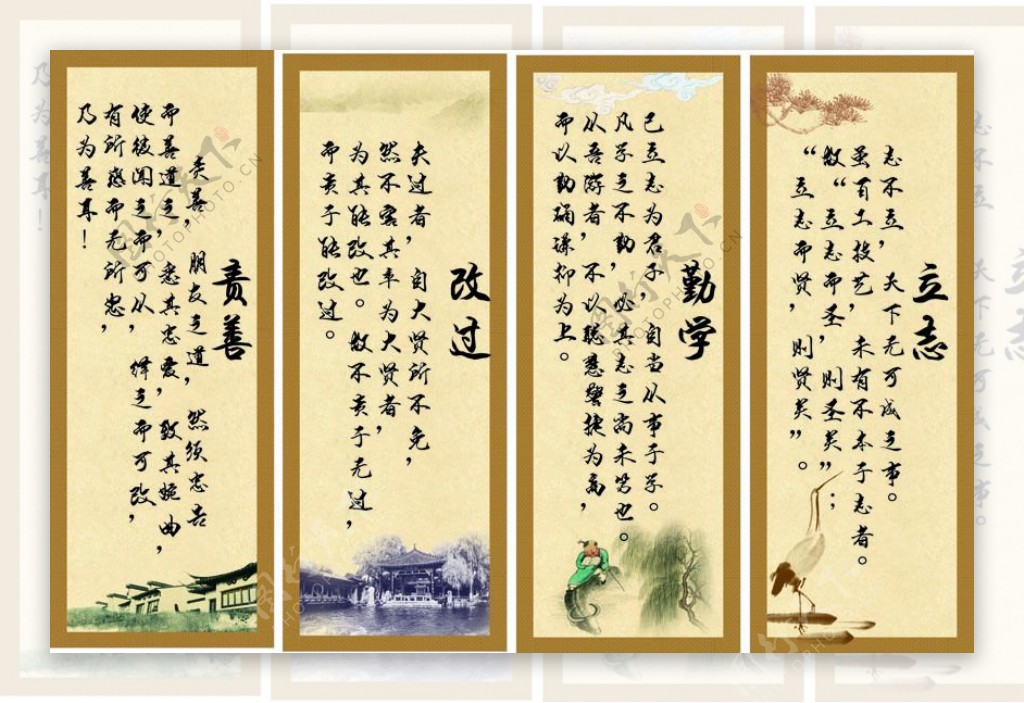 立志
志不立,天下无可成之事。
虽百工技艺,未有不本于志者。
故“立志而圣,则圣矣”;
“立志而贤,则贤矣”。
勤学
己立志为君子,自当从事于学。
凡学之不勤,必其志之尚未笃也。
从吾游者,不以聪慧警捷为高,
而以勤确谦抑为上。
改过
夫过者,自大贤所不免,
然不害其卒为大贤者,
为其能改也。故不贵于无过,
而贵于能改过。
责善
责善,朋友之道,然须忠告
而善道之,悉其忠爱,致其婉曲,
使彼闻之而可从,绎之而可改,
有所感而无所怨,
乃为善耳!